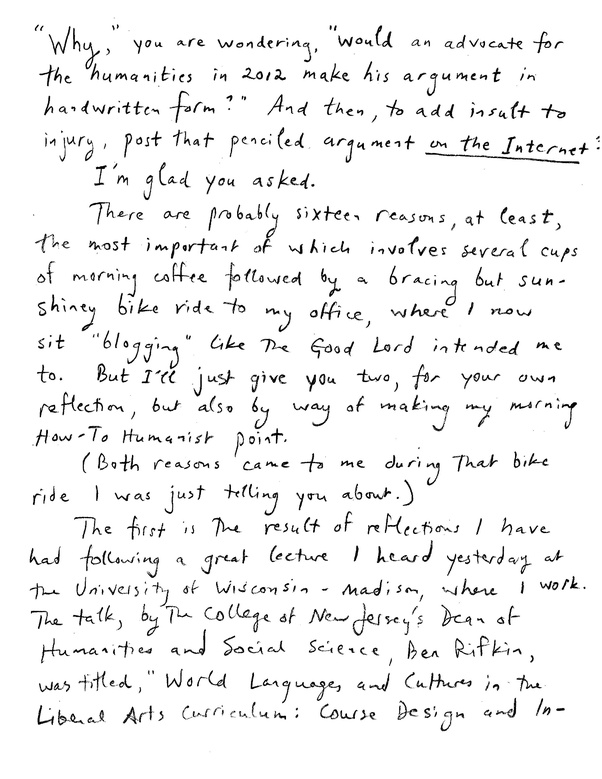 "Why," you are wondering, "would an advocate for
the humanities in 2012 make his argument in
handwritten form?" And then, to add insult to
injury, post that penciled argument on the Internet?
I'm glad you asked.
There are probably sixteen reasons, at least,
the most important of which involves several cups
of morning coffee followed by a bracing but sun-
shiney bike ride to my office, where I now
sit "blogging" like The Good Lord intended me
to. But I'll just give you two, for your own
reflection, but also by way of making my morning
How-To Humanist point.
(Both reasons came to me during That bike
ride I was just telling you about.)
The first is The result of reflections I have
had following a great lecture I heard yesterday at
the University of Wisconsin - Madison, where I work.
The talk, by The College of New Jersey's Dean of
Humanities and Social Science, Ben Rifkin,
was titled, "World Languages and Cultures in the
Liberal Arts Curriculum: Course Design and In-